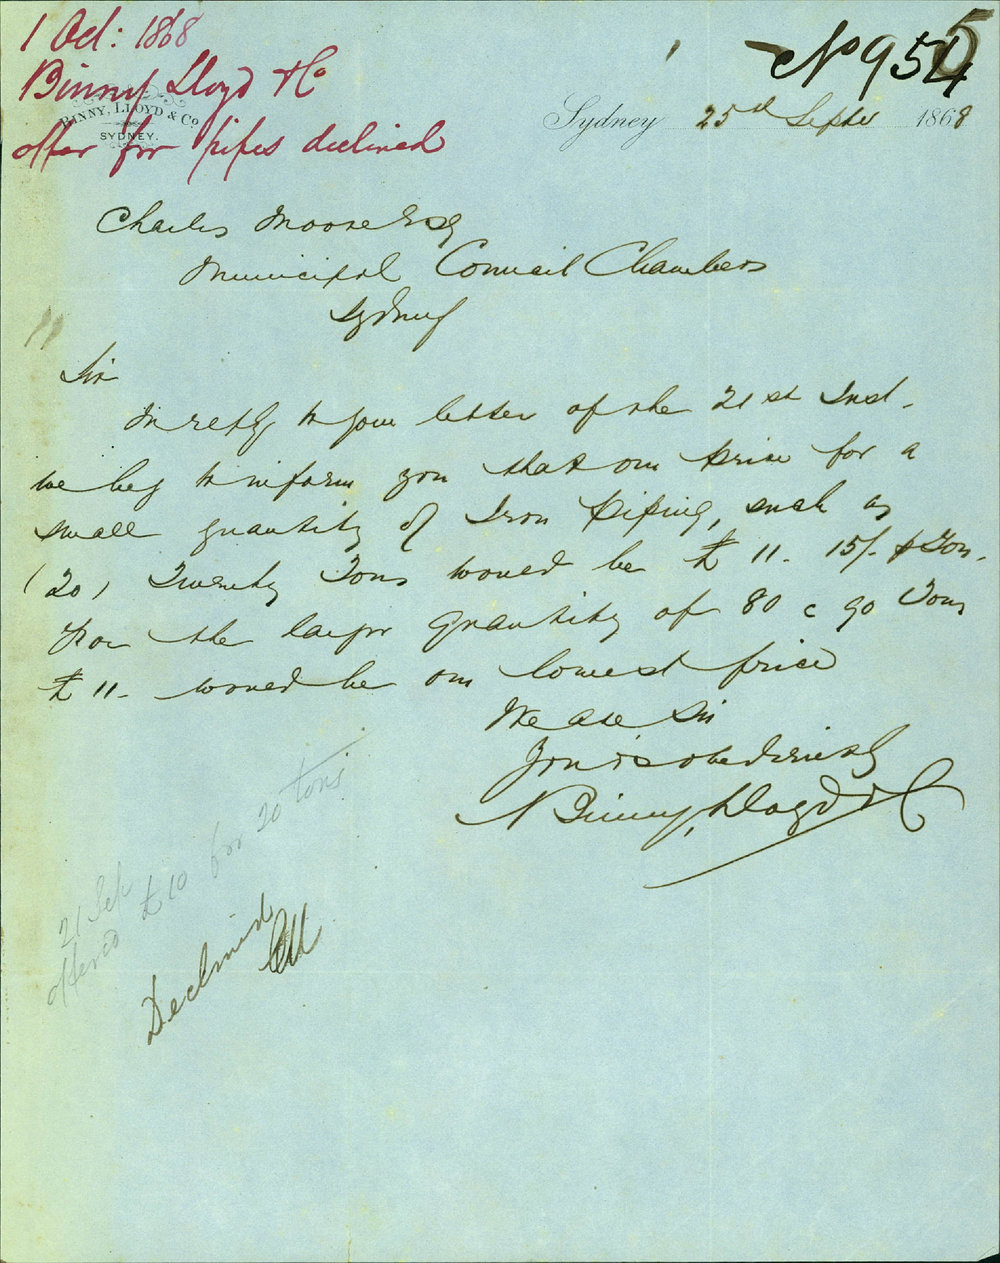 1 Oct: 1868
Binny Lloyd & Co
offer for pipes declined
BINNY, LLOYD & Co.
SYDNEY.
No 955
Sydney 25th Septr 1868
Charles Moore Esq
Municipal Council Chambers
Sydney
Sir
In reply to your letter of the 21st Inst.
we beg to inform you that our price for a
small quantity of Iron Piping, such as
(20) Twenty Tons would be £11. 15/- p Ton.
For the large quantity of 80 @ 90 Tons
£11- would be our lowest price
We are Sir
Your's obediently
Binny, Lloyd & C
21 Sep
offered £10 for 20 tons
Declined
CM